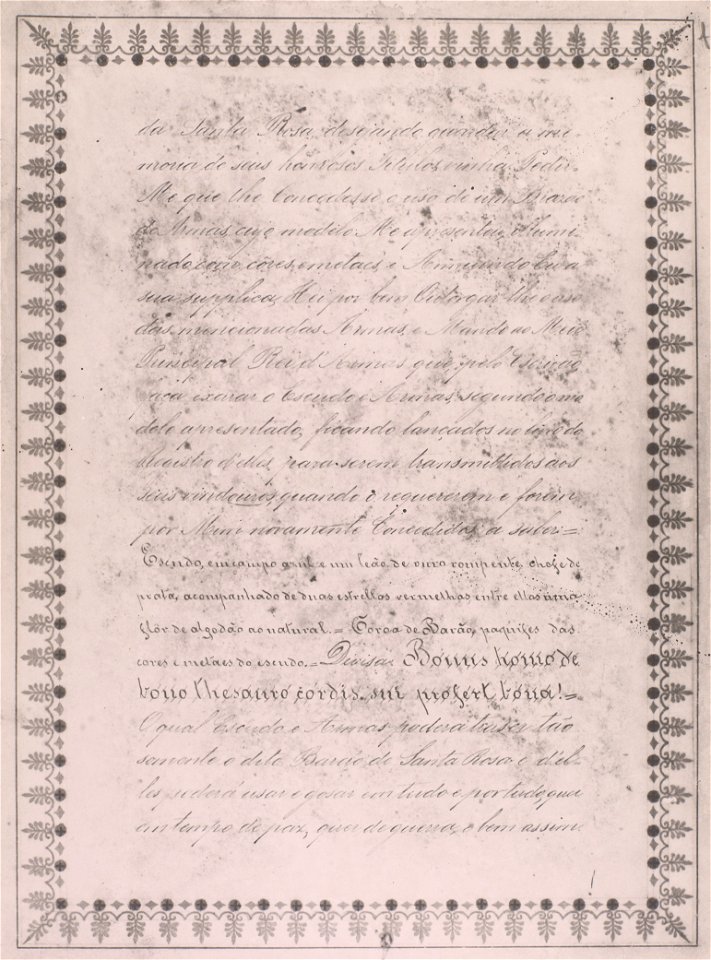 de Santa Rosa, desejando guardar a me-
moria de seus honrosos Titulos, vinha Pedir-
Me que lhe Concedesse o uso de um Brazão
de Armas, cujo modelo Me apresentou, illumi-
nado com côres, e metaes, e Annuindo Eu a
sua supplica, Hei por bem Outorgar-lhe o uso
das mencionadas Armas, e Mando ao Meu
Principal Rei d'Armas, que, pelo Escrivão
faça exarar o Escudo e Armas, segundo o mo-
delo apresentado, ficando lançados no livro do
Registro d'elles, para serem transmittidos aos
seus vindouros, quando o requererem e forem
por Mim novamente Concedidos, a saber:=
Escudo, em campo azul e um leão de ouro rompente, chefe de
prata, acompanhado de duas estrellas vermelhas entre ellas uma
flôr de algodão ao natural.= Coroa de Barão, paquifes das
cores e metaes do escudo.= Divisa: Bonus homo de
bono thesauro cordis sui profert bona!=
O qual Escudo e Armas poderá trazer tão
semente o dito Barão de Santa Rosa, e d'el-
les poderá usar e gosar em tudo e por tudo, quer
em tempo de paz, quer de guerra, e bem assim